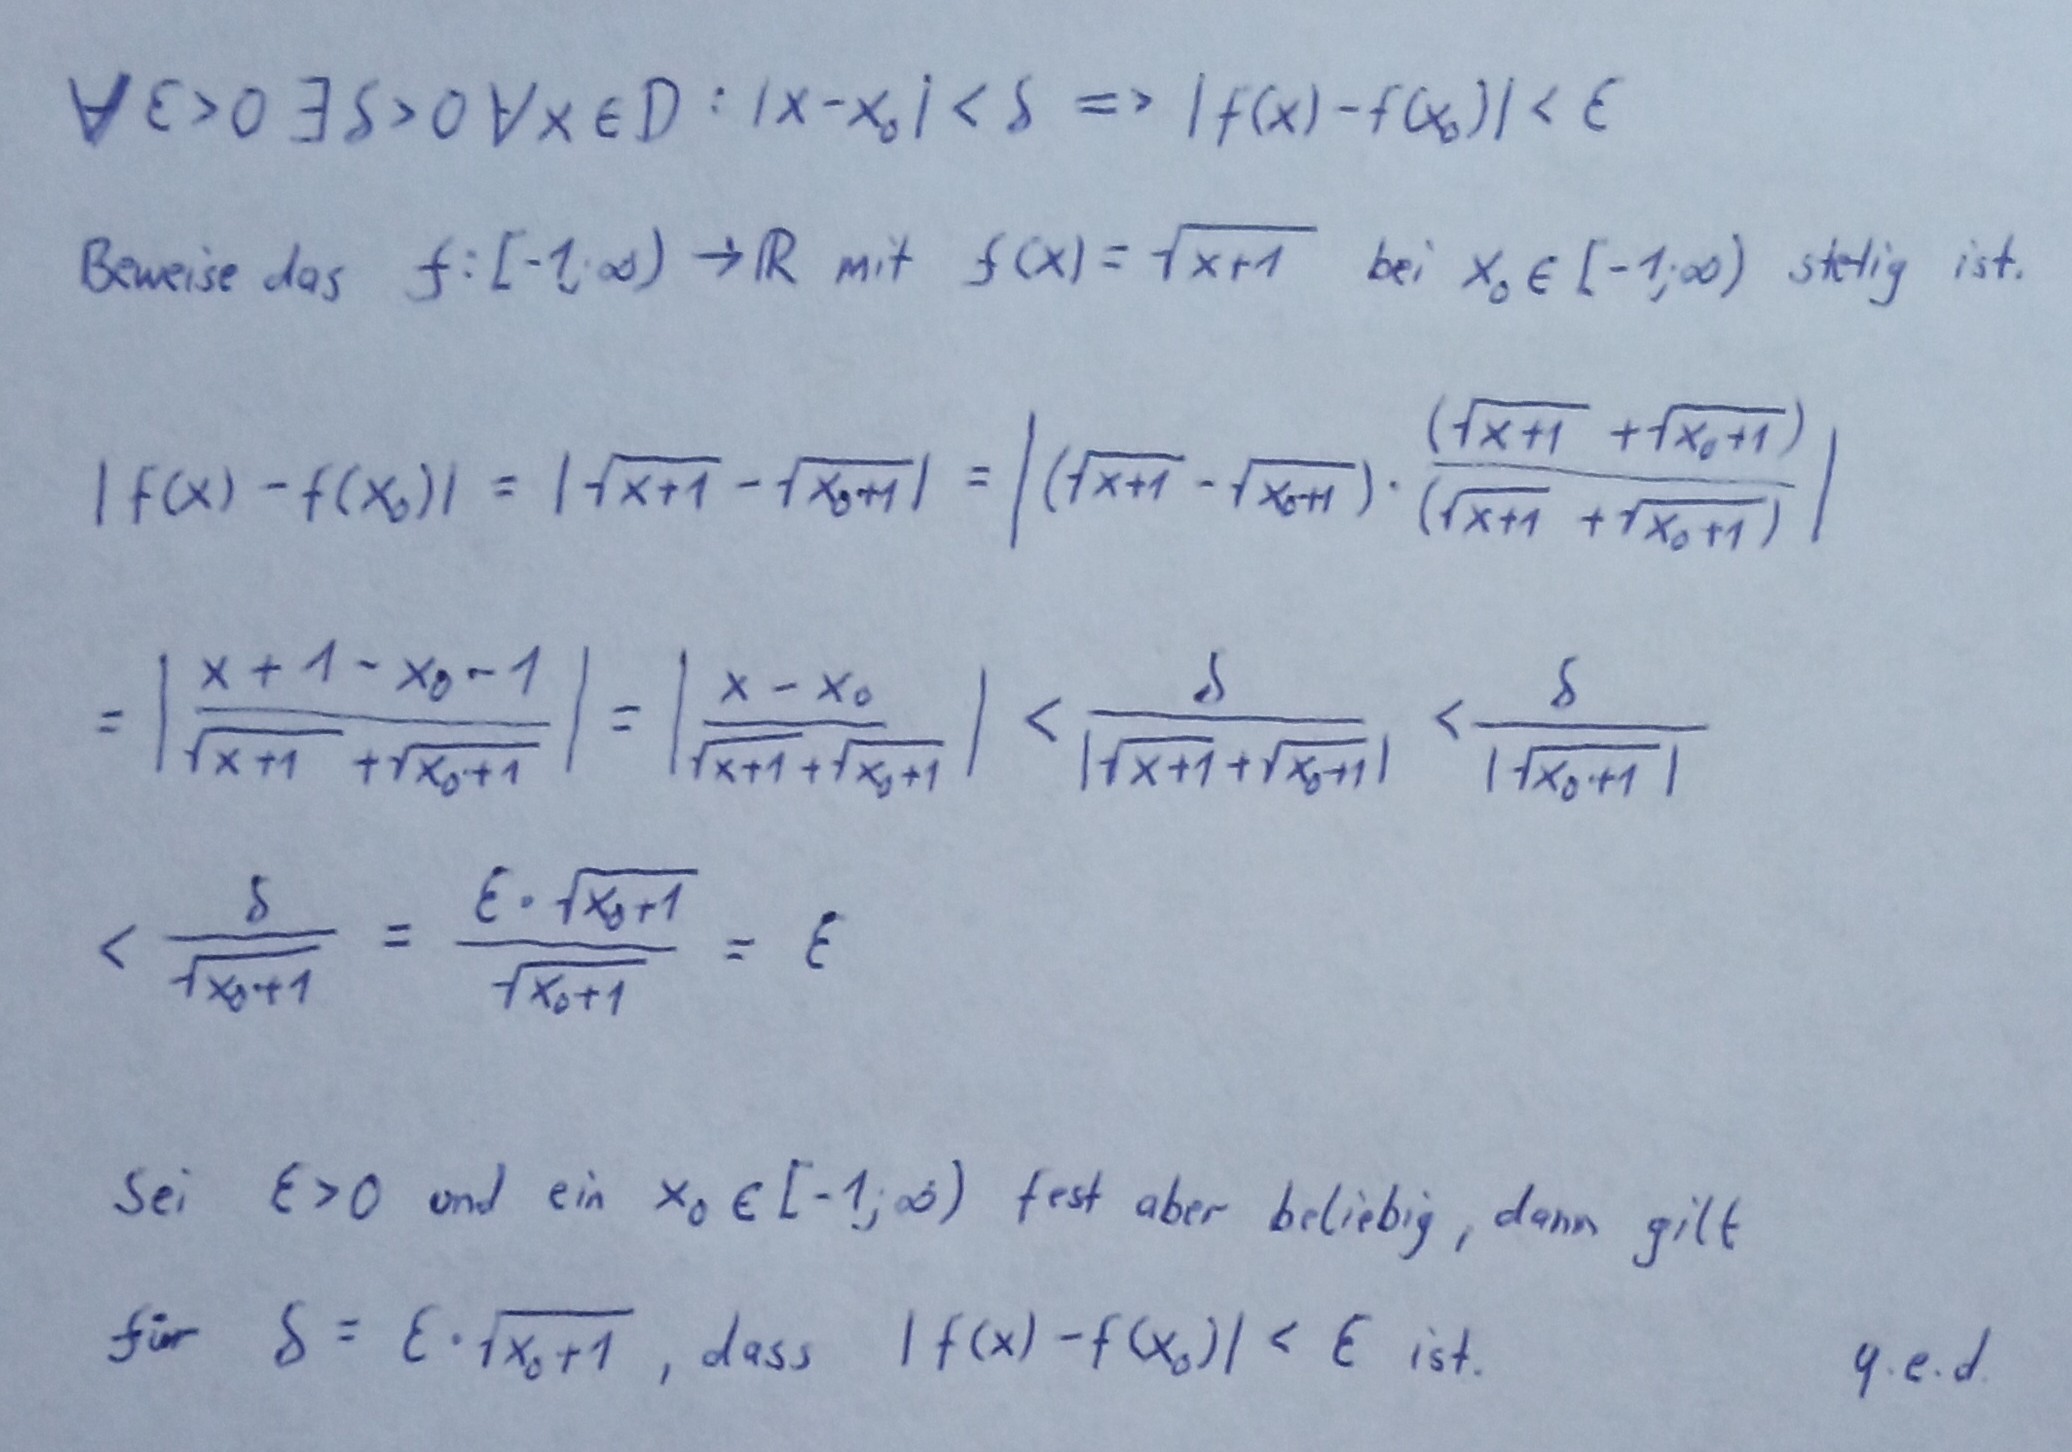 ∀ ε>0 ∃ δ>0 ∀x∈D : |x-x₀| < δ => |f(x)-f(x₀)| < ε
Beweise das f: [-1;∞) → ℝ mit f(x) = √(x+1) bei x₀ ∈ [-1;∞) stetig ist.
|f(x)-f(x₀)| = |√(x+1) - √(x₀+1)| = |(√(x+1) - √(x₀+1)) · (√(x+1) + √(x₀+1))/(√(x+1) + √(x₀+1))|
= |(x+1-x₀-1)/(√(x+1) + √(x₀+1))| = |(x-x₀)/(√(x+1) + √(x₀+1))| < δ/|√(x+1) + √(x₀+1)| < δ/|√(x₀+1)|
< δ/√(x₀+1) = (ε·√(x₀+1))/√(x₀+1) = ε
Sei ε>0 und ein x₀ ∈ [-1;∞) fest aber beliebig, dann gilt
für δ = ε·√(x₀+1), dass |f(x)-f(x₀)| < ε ist. q.e.d.